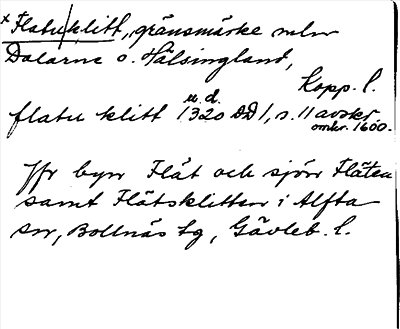 * Flatu|klitt, gränsmärke mln
Dalarne o. Hälsingland,
Kopp. l.
u. d.
flatu klitt 1320 DD 1, s. 11 avskr.
omkr. 1600.
Jfr byn Flät och sjön Fläten
samt Flätsklitten i Alfta
sn, Bollnäs tg, Gävleb. l.